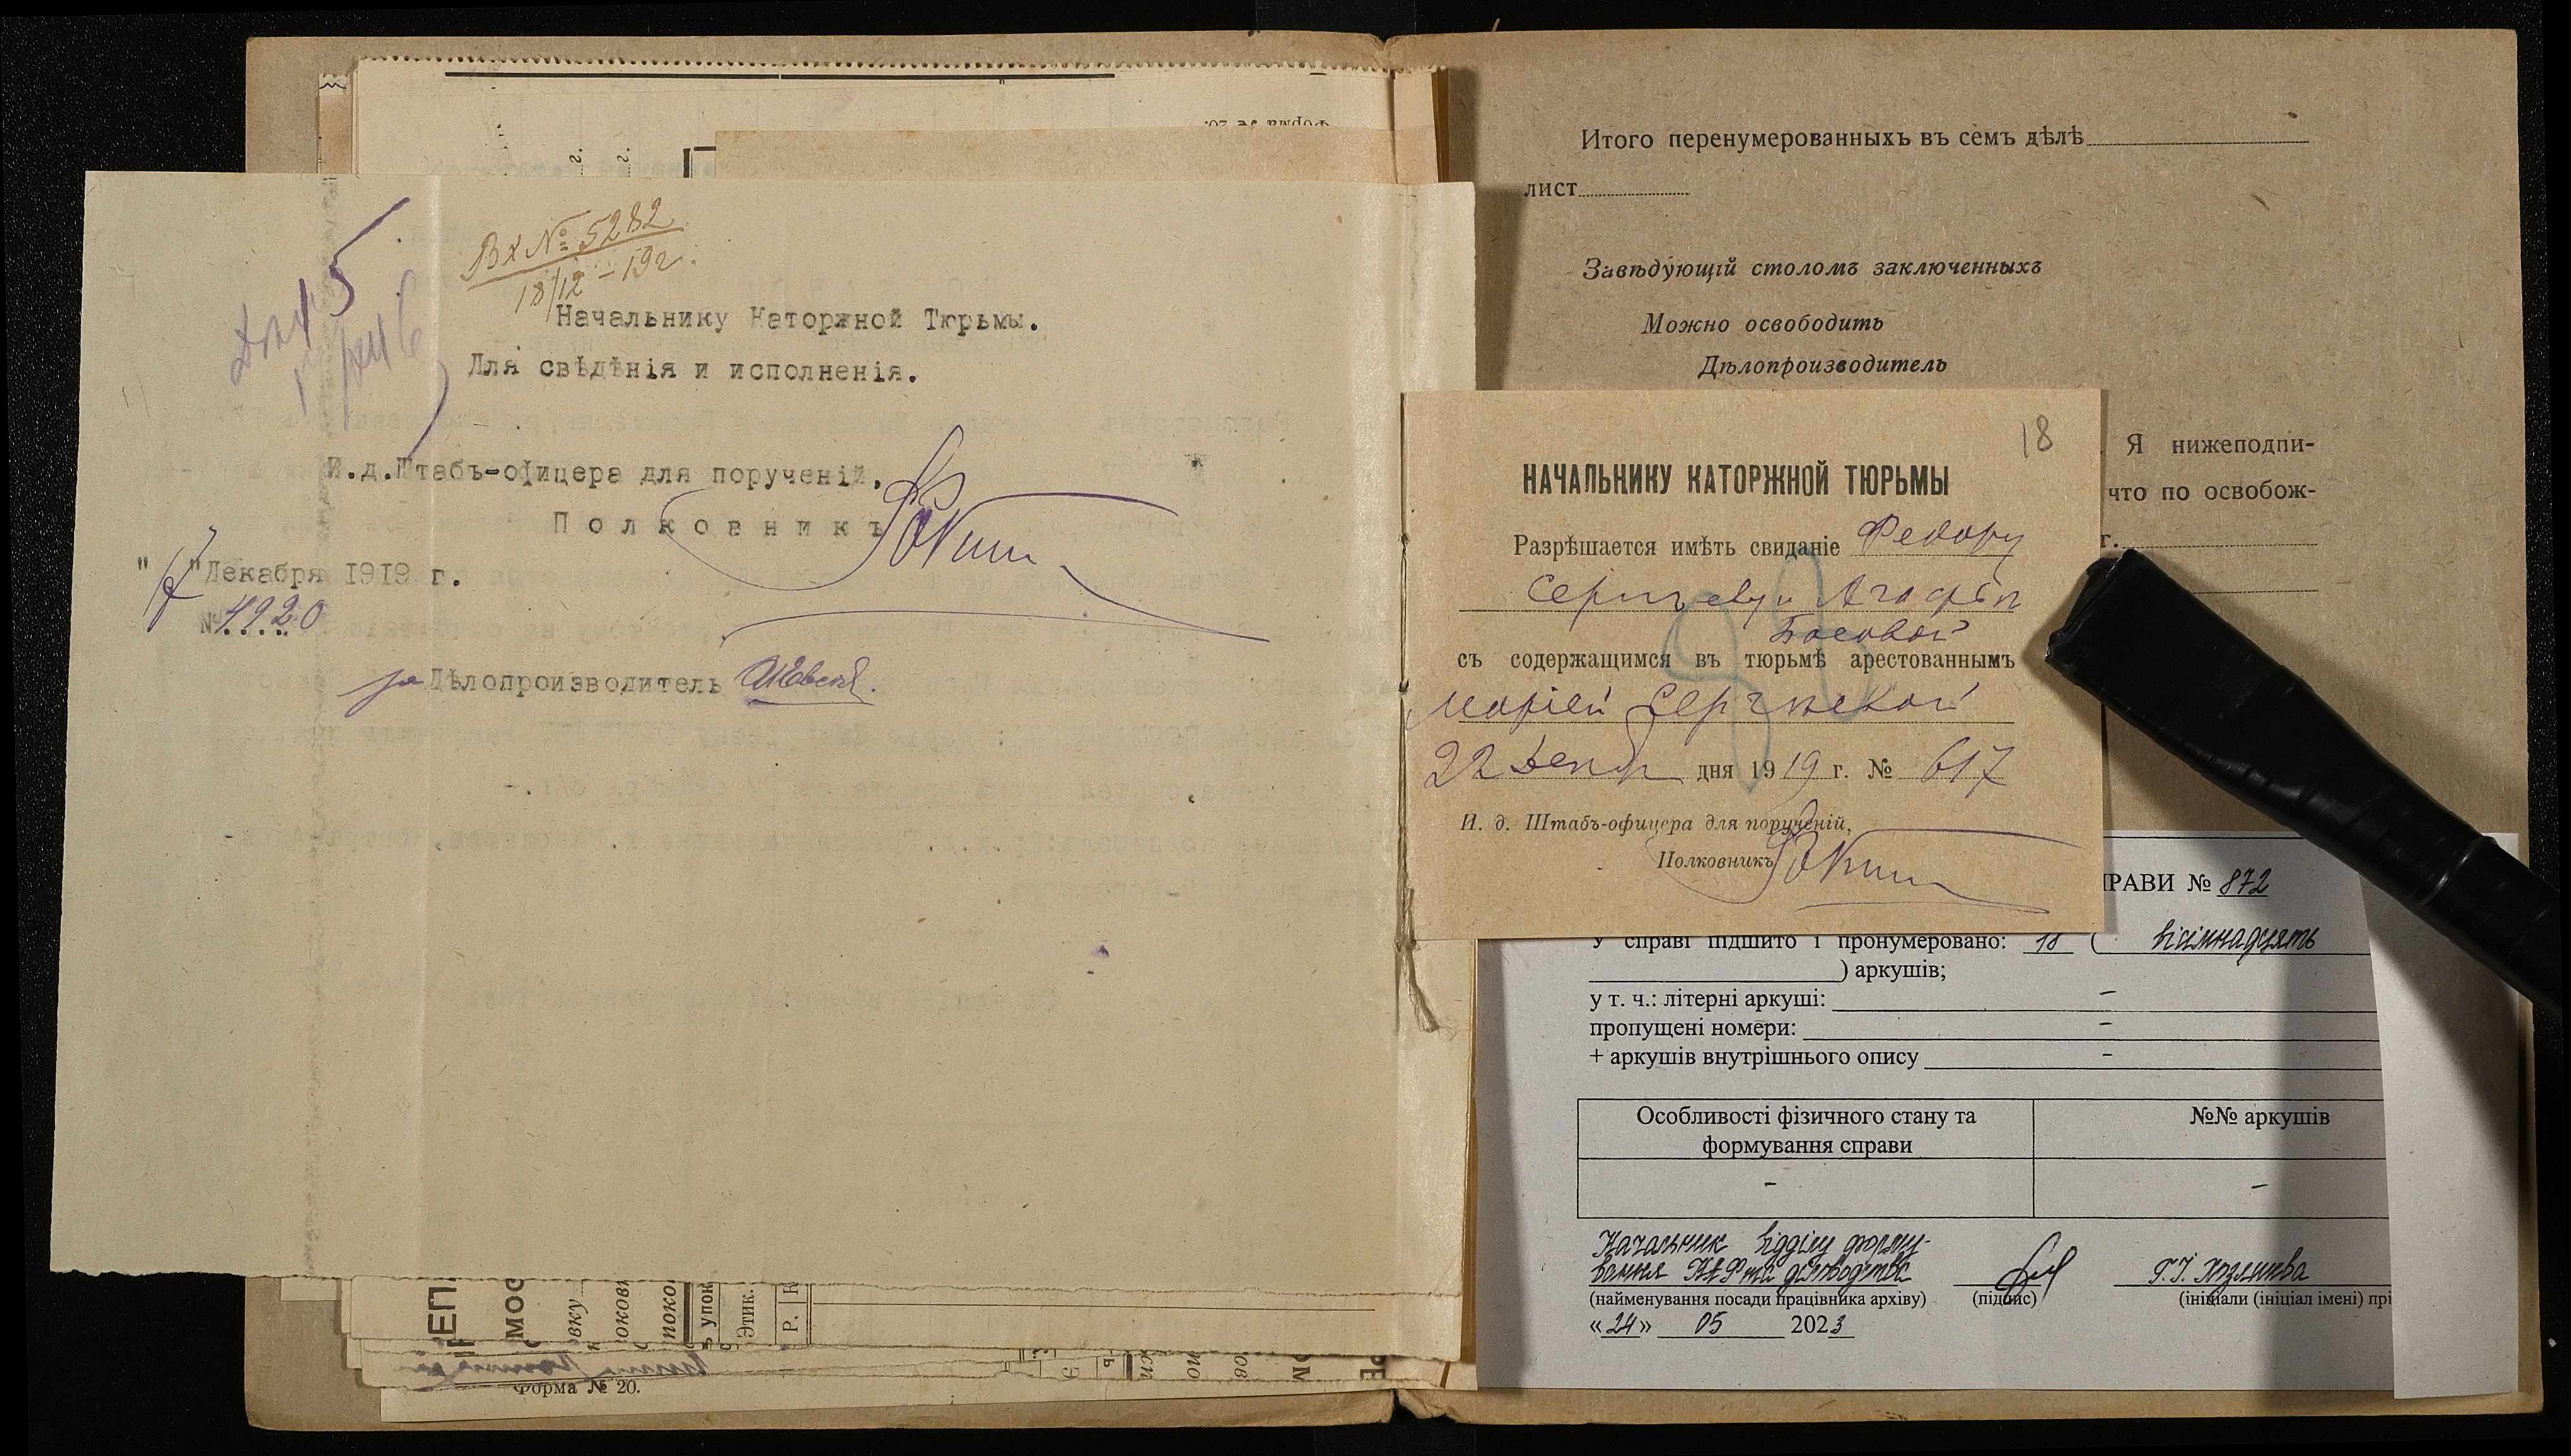 Вх № 5282
18/12 – 19 г.
Начальнику Каторжной Тюрьмы.
Для свѣдѣнія и исполненія.
И.д.Штабъ-офицера для порученій,
Полковникъ
"17"Декабря 1919 г.
№ 4920
за Дѣлопроизводитель
Форма № 20.
Итого перенумерованныхъ въ семъ дѣлѣ
лист
Завѣдующій столомъ заключенныхъ
Можно освободить
Дѣлопроизводитель
Я нижеподпи-
что по освобож-
г.
18
НАЧАЛЬНИКУ КАТОРЖНОЙ ТЮРЬМЫ
Разрѣшается имѣть свиданіе Федору
Сергѣеву и Агафьи
Босовой
съ содержащимся въ тюрьмѣ арестованнымъ
Маріей
22 Декабр дня 1919 г. № 617
И. д. Штабъ-офицера для порученій,
Полковникъ
РАВИ № 872
У справі підшито і пронумеровано: 18 ( вісімнадцять
) аркушів;
у т. ч.: літерні аркуші: –
пропущені номери: –
+ аркушів внутрішнього опису –
Особливості фізичного стану та
формування справи
№№ аркушів
–
–
Начальник відділу форму-
вання НАФ та діловодства
(найменування посади працівника архіву) (підпис) (ініціали (ініціал імені) прі
«24» 05 2023